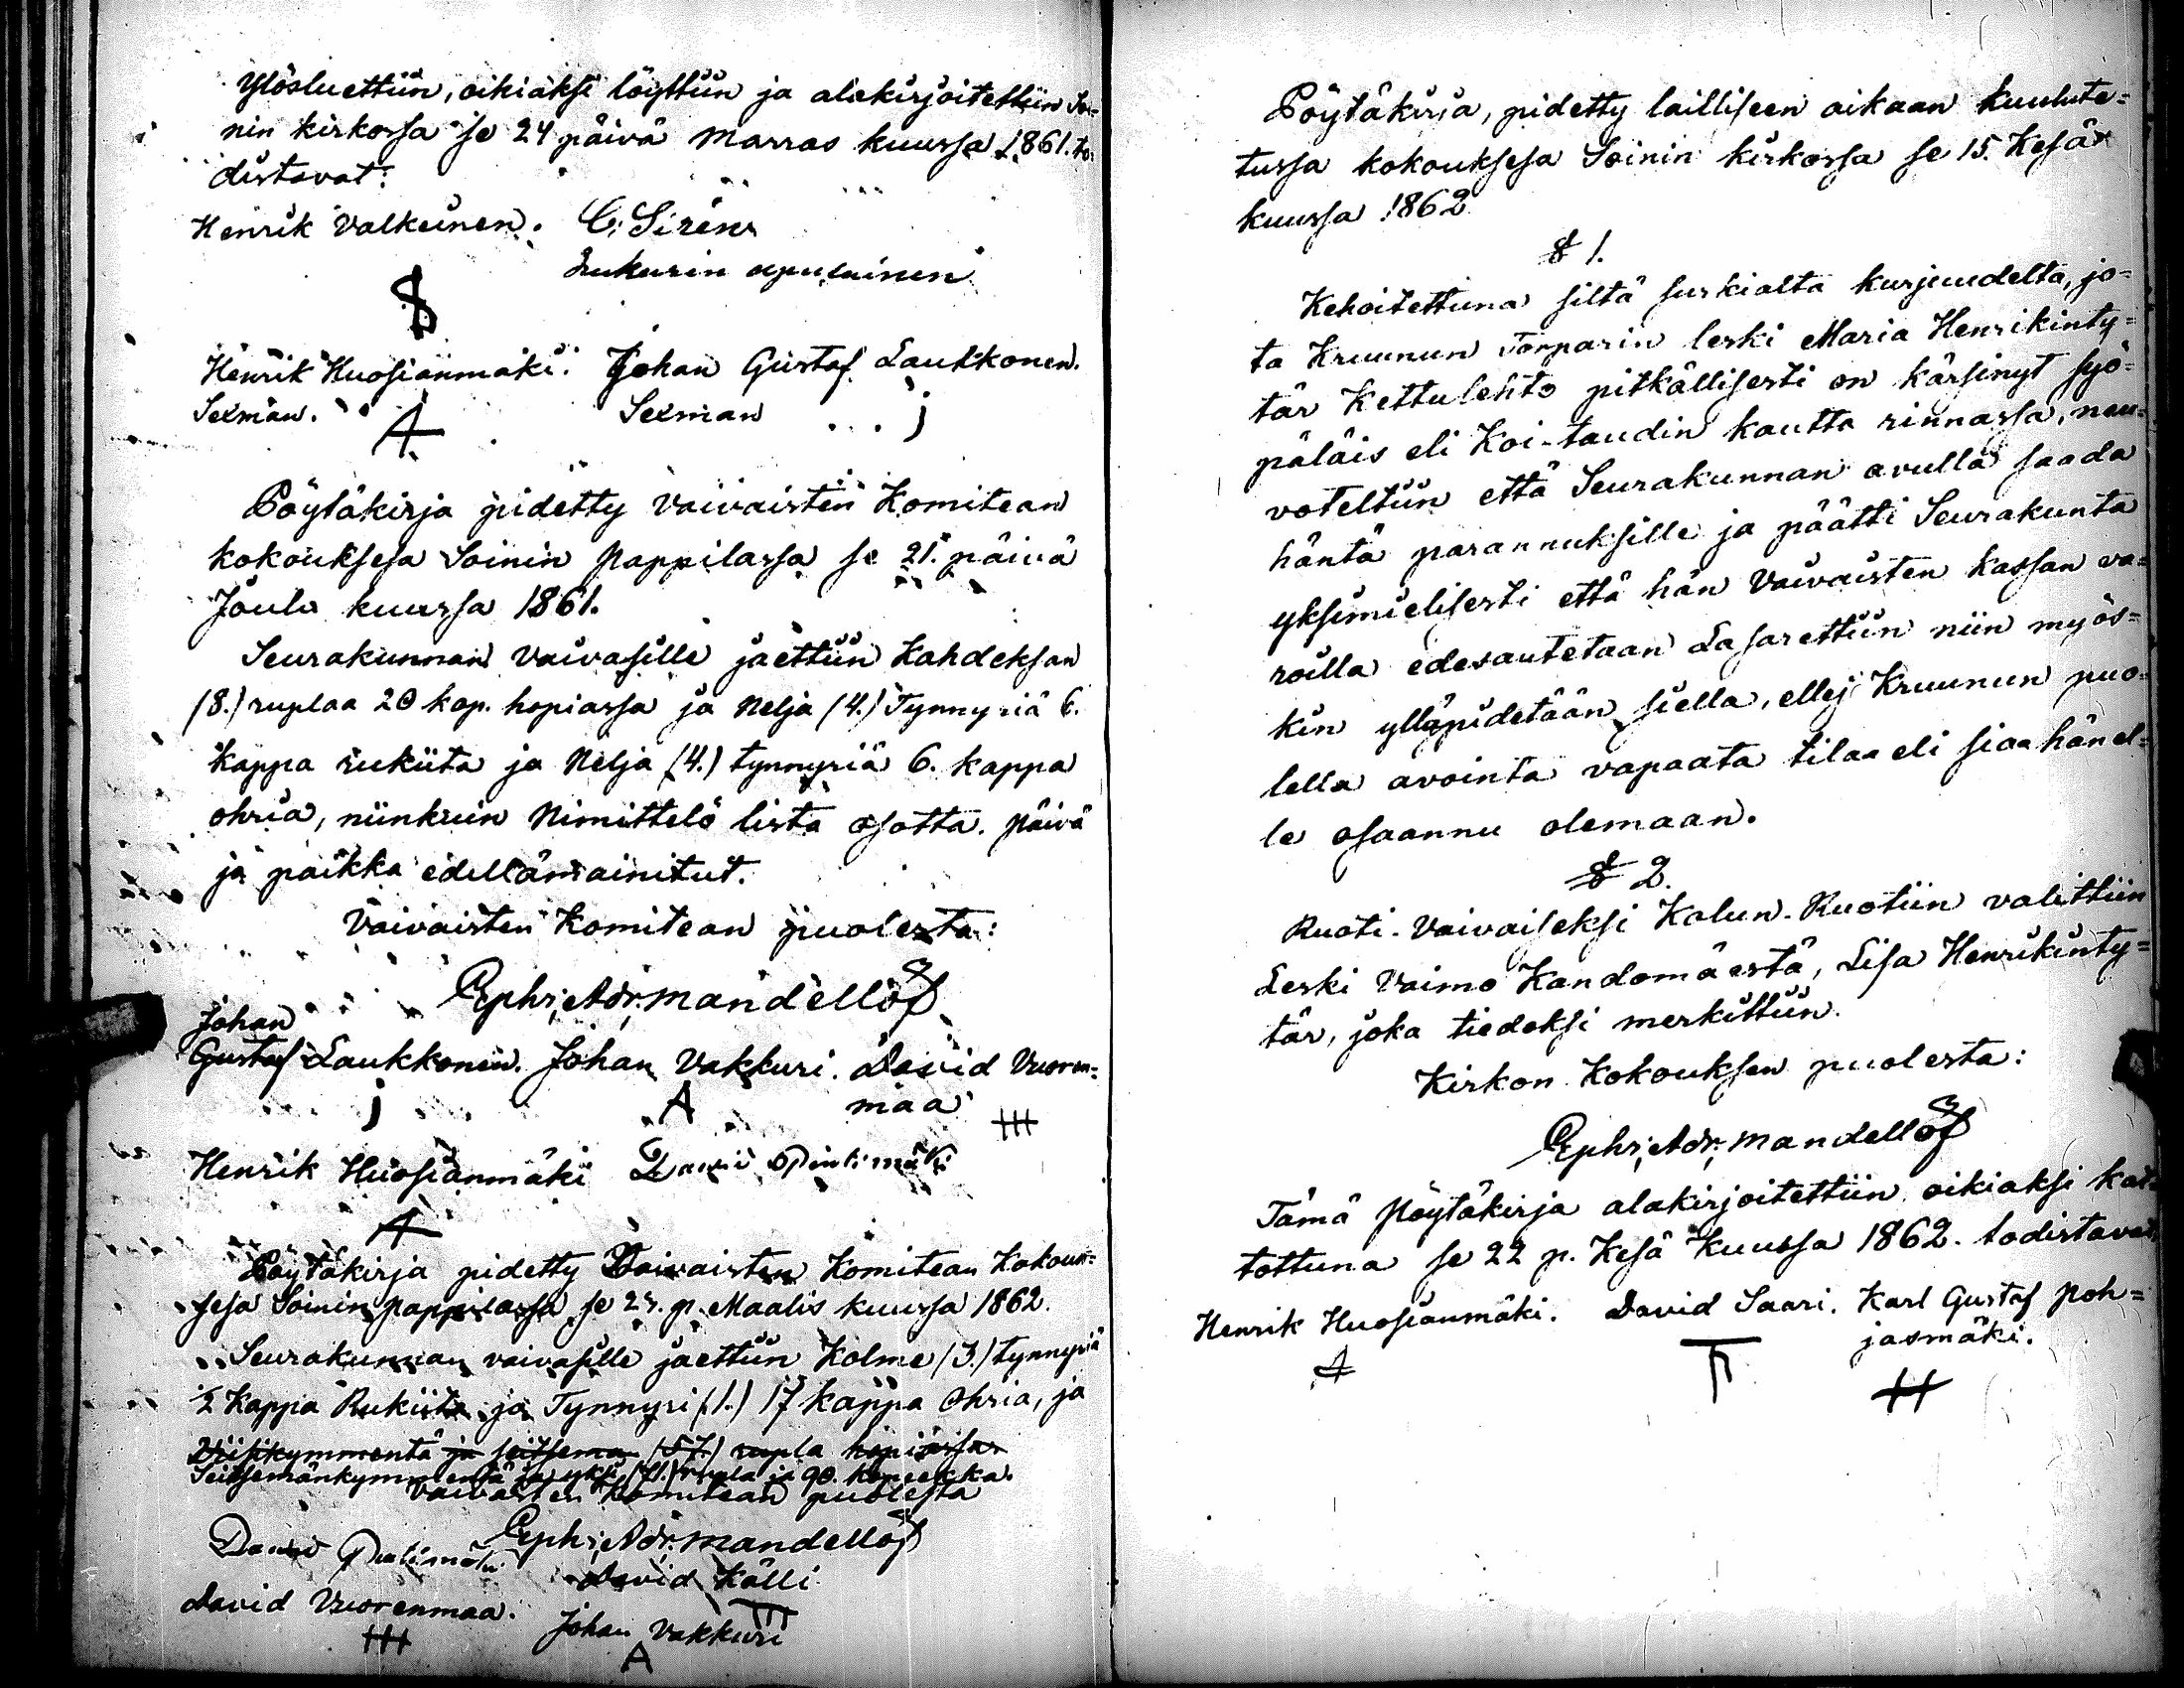 Ylösluettiin, oikiaksi löyttiin ja alakirjoitettiin Soi=
nin kirkossa se 24 päivä Marras kuussa 1861. to=
distavat:
Henrik Valkeinen. C. Sirén
Lukurin apulainen
Henrik Huosianmäki. Johan Gustaf Laukkonen.
Sexman. A Sexman j
Pöytäkirja pidetty Vaivaisten Komitean
kokouksesa Soinin Pappilassa se 21. päivä
Joulu kuussa 1861.
Seurakunnan Vaivasille jaettiin Kahdeksan
(8.) ruplaa 20 kop. hopiassa ja Neljä (4.) Tynnyriä 6.
kappa rukiita ja Neljä (4.) tynnyriä 6. kappa
ohria, niinkuin Nimittelö lista osotta. Päivä
ja paikka edellämainitut.
Vaivaisten Komitean puolesta:
Ephr. Adr. Mandellöf
Johan
Gustaf Laukkonen. Johan Vakkuri. David Vuoren=
j A maa
Henrik Huosianmäki David Pulimäki
A
Pöytäkirja pidetty Vaivaisten Komitean Kokouk=
sesa Soinin Pappilassa se p. Maalis kuussa 1862.
Seurakunnan vaivasille jaettiin Kolme (3.) tynnyriä
½ Kappa Rukiita ja Tynnyri (1.) 17 kappa Ohria, ja
Viisikymmentä ja seitsemä (57.) rupla hopiassa
Seitsemänkymmentä ja yksi (71.) rupla ja 90. kopeekka.
Vaivaisten Komitean puolesta
Ephr. Adr. Mandellöf
David Pulimäki
David Källi
David Vuorenmaa.
Johan Vakkuri
A
Pöytäkirja, pidetty lailliseen aikaan kuulute=
tussa kokouksesa Soinin kirkossa se 15. Kesä
kuussa 1862
§ 1.
Kehoitettuna siltä surkialta kurjuudelta, jo=
ta Kruunun Torparin leski Maria Henrikinty=
tär Kettulehto pitkällisesti on kärsinyt syö=
päläis eli Koi-taudin kautta rinnassa, neu=
voteltiin että Seurakunnan avulla saada
häntä parannuksille ja päätti Seurakunta
yksimielisesti että hän Vaivaisten kassan va=
roilla edesautetaan Lasarettiin niin myös=
kin ylläpidetään siella, ellej Kruunun puo=
lella avointa vapaata tilaa eli siaa hänel=
le osaannu olemaan.
§ 2.
Ruoti-Vaivaiseksi Kalun-Ruotiin valittiin
Leski Vaimo Kandomäestä, Lisa Henrikinty=
tär, joka tiedoksi merkittiin.
Kirkon Kokouksen puolesta:
Ephr. Adr. Mandellöf
Tämä Pöytäkirja alakirjoitettiin oikiaksi kat=
tottuna se 22 p. Kesä Kuussa 1862. todistavat,
Henrik Huosianmäki. David Saari. Karl Gustaf Poh=
jasmäki.
A